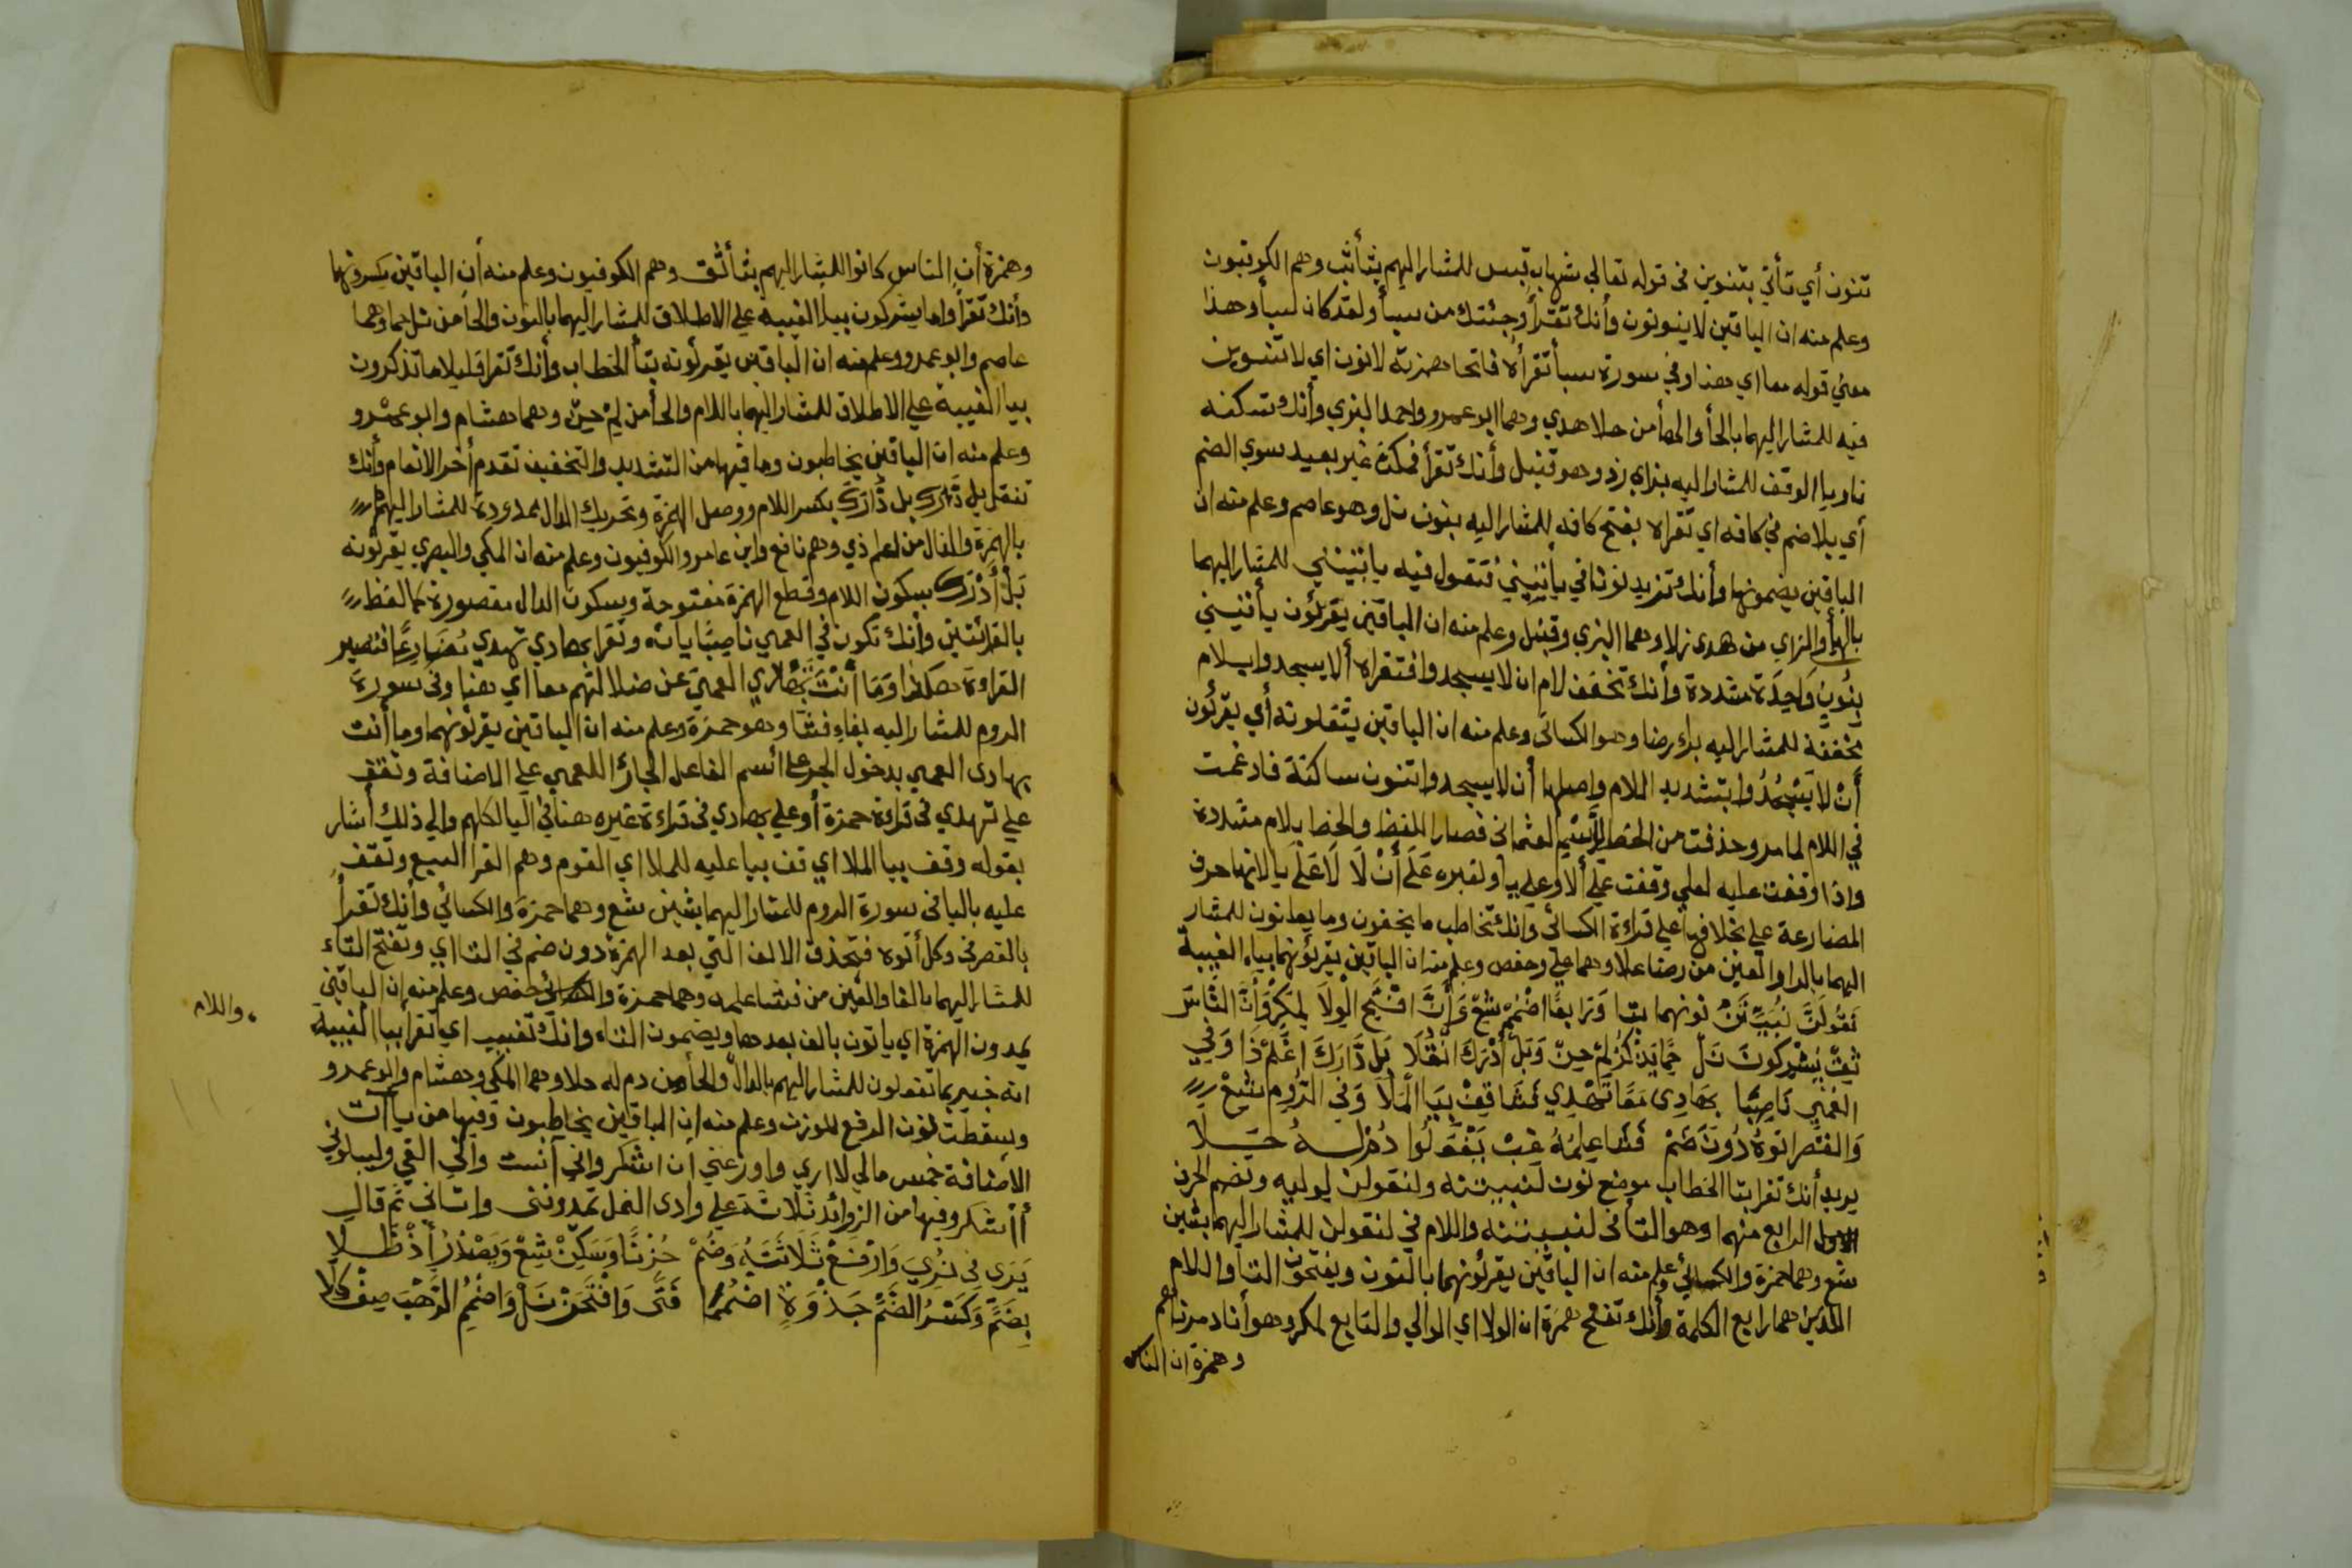 تنون أي تأتي بتنوين في قوله تعالى شهاب قبس للمشار اليهم بثأثب وهم الكوفيون
وعلم منه ان الباقين لا ينونون وأنك تقرأ وجئتك من سبأ ولقد كان لسبأ وهذا
معنى قوله معا اي هنا وفي سورة سبأ تقرأه فاتحا همزته لا نون اي لا تنوين
فيه للمشار اليهما بالحأ والهأ من حلا هدي وهما ابو عمرو واحمد البزي وأنك تسكنه
ناويا الوقف للمشار اليه بزاي زد وهو قنبل وأنك تقرأ فمكث غير بعيد سوي الضم
أي بلا ضم في كافه اي تقراه بفتح كافه للمشار اليه بنون نل وهو عاصم وعلم منه ان
الباقين يضمونها وأنك تزيد نونا في يأتيني فتقول فيه يأتينني للمشار اليهما
بالهأ والزاي من هدى زلا وهما البزي وقنبل وعلم منه ان الباقين يقرئون يأتيني
بنون واحدة مشددة وأنك تخفف لام ان لا يسجدوا فتقراه ألا يسجدوا بلام
مخففة للمشار اليه براء رضا وهو الكسائي وعلم منه ان الباقين يثقلونه أي يقرئون
أن لا يسجدوا بتشديد اللام واصلها أن لا يسجدوا بنون ساكنة فادغمت
في اللام لما مر وحذفت من الخط للرسم العثماني فصار اللفظ والخط بلام مشددة
واذا وقفت عليه لعلي وقفت علي ألا وعلي يا ولغيره على أن لا لا على يا لانها حرف
المضارعة علي خلافها علي قراءة الكسائي وانك تخاطب ما يخفون وما يعلنون للمشار
اليهما بالرا والعين من رضا علا وهما علي وحفص وعلم منه ان الباقين يقرئونهما بياء الغيبة
تقولن نبيتن نونهما بتا ورابعا اضمم شع وأن افتح الولا لمكر وأن الناس
ثق يشركون نل حما يذكر لم حن وبل أدرك انقلا بل دارك اعلم ذا وفي
العمي ناصبا بهادي معا تهدي فشا قف بيا الملا وفي الروم شع
والقصر اتوه دون ضم فشا علمه غب بتفعلوا دم له حلا
يريد أنك تقرا بتا الخطاب موضع نون لنبيتنه ولنقولن لوليه وتضم الحرف
الرابع منهما وهو التأ في لنبيتنه واللام في لنقولن للمشار اليهما بشين
شع وهما حمزة والكسائي وعلم منه ان الباقين يقرئونهما بالنون ويفتحون التا واللام
اللذين هما رابع الكلمة وأنك تفتح همزة ان الولا اي الوالي والتابع لمكر وهو أنا دمرناهم
وهمزة ان الناس
وهمزة أن الناس كانوا للمشار اليهم بثأ ثق وهم الكوفيون وعلم منه أن الباقين يكسرونها
وأنك تقرأ واما يشركون بيا الغيبة علي الاطلاق للمشار اليهما بالنون والحأ من نل حما وهما
عاصم وابو عمرو وعلم منه ان الباقين يقرئونه بتأ الخطاب وأنك تقرا قليلا ما تذكرون
بيا الغيبة علي الاطلاق للمشار اليهما باللام والحأ من لم حن وهما هشام وابو عمرو
وعلم منه ان الباقين يخاطبون وما فيها من التشديد والتخفيف تقدم أخر الانعام وأنك
تنقل بل أدرك بل دارك بكسر اللام ووصل الهمزة وتحريك الدال ممدودة للمشار اليهم
بالهمزة والذال من اعلم ذي وهم نافع وابن عامر والكوفيون وعلم منه ان المكي والبصري يقرئونه
بل أدرك بسكون اللام وقطع الهمزة مفتوحة وسكون الدال مقصورة كما لفظ
بالقرائتين وأنك تكون في العمي ناصبا ياته وتقرا بهادي تهدي مضارعا فتصير
القراءة هكذا وما أنت تهدي العمي عن ضلالتهم معا اي هنا وفي سورة
الروم للمشار اليه بفاء فشا وهو حمزة وعلم منه ان الباقين يقرئونهما وما أنت
بهادى العمي بدخول الجر علي اسم الفاعل الجار للعمي علي الاضافة وتقف
علي تهدي في قراءة حمزة أو علي بهادي في قراءة غيره هنا في اليا لكلهم والي ذلك أشار
بقوله وقف بيا الملا اي قف بيا عليه للملا اي القوم وهم القرا السبع وتقف
عليه باليا في سورة الروم للمشار اليهما بشين شع وهما حمزة والكسائي وأنك تقرأ
بالقصر في وكل أتوه فتحذف الالف التي بعد الهمزة دون ضم في التا اي وتفتح التاء
للمشار اليهما بالفا والعين من فشا علمه وهما حمزة وحفص وعلم منه ان الباقين
يمدون الهمزة اي ياتون بالف بعدها ويضمون التاء وانك تغيب اي تقرا بيا الغيبة
انه خبير بما تفعلون للمشار اليهم بالدال والحأ من دم له حلا وهما المكي وهشام وابو عمرو
واللام
وسقطت نون الرفع للوزن وعلم منه ان الباقين يخاطبون وفيها من يآت
الاضافة خمس مالي لا اري واوزعني أن اشكر واني آنست واني القي وليبلوني
أأشكر وفيها من الزوائد ثلاثة علي وادى النمل تمدونني واتاني ثم قال
يرى في نري وارفع ثلاثته وضم حزنا وسكن شع ويصدر أذ ظلا
بضم وكسر الضم جذوة اضمما فتى وافتحن نل واضمم الرهب صف كلا